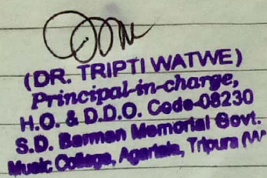 (DR. TRIPTI WATWE)
Principal-in-charge,
H.O. & D.D.O. Code-08230
S.D. Barman Memorial Govt.
Music College, Agartala, Tripura (W